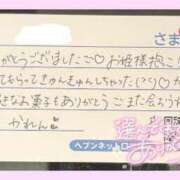 さま
がとうございました♡お姫様抱っこ
てもらってきゅんきゅんしちゃった(><)♡か
きなお菓子もありがとう♡また会おうね
かれん
ヘブンネット